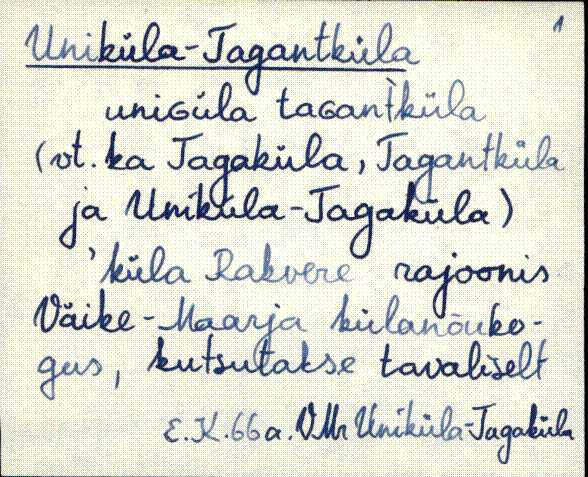 1
Uniküla-Tagantküla
uniGüla taGant̀küla
(vt. ka Tagaküla, Tagantküla
ja Uniküla-Tagaküla)
'küla Rakvere rajoonis
Väike-Maarja külanõuko-
gus, kutsutakse tavaliselt
E.K. 66 a. VMr Uniküla-Tagaküla